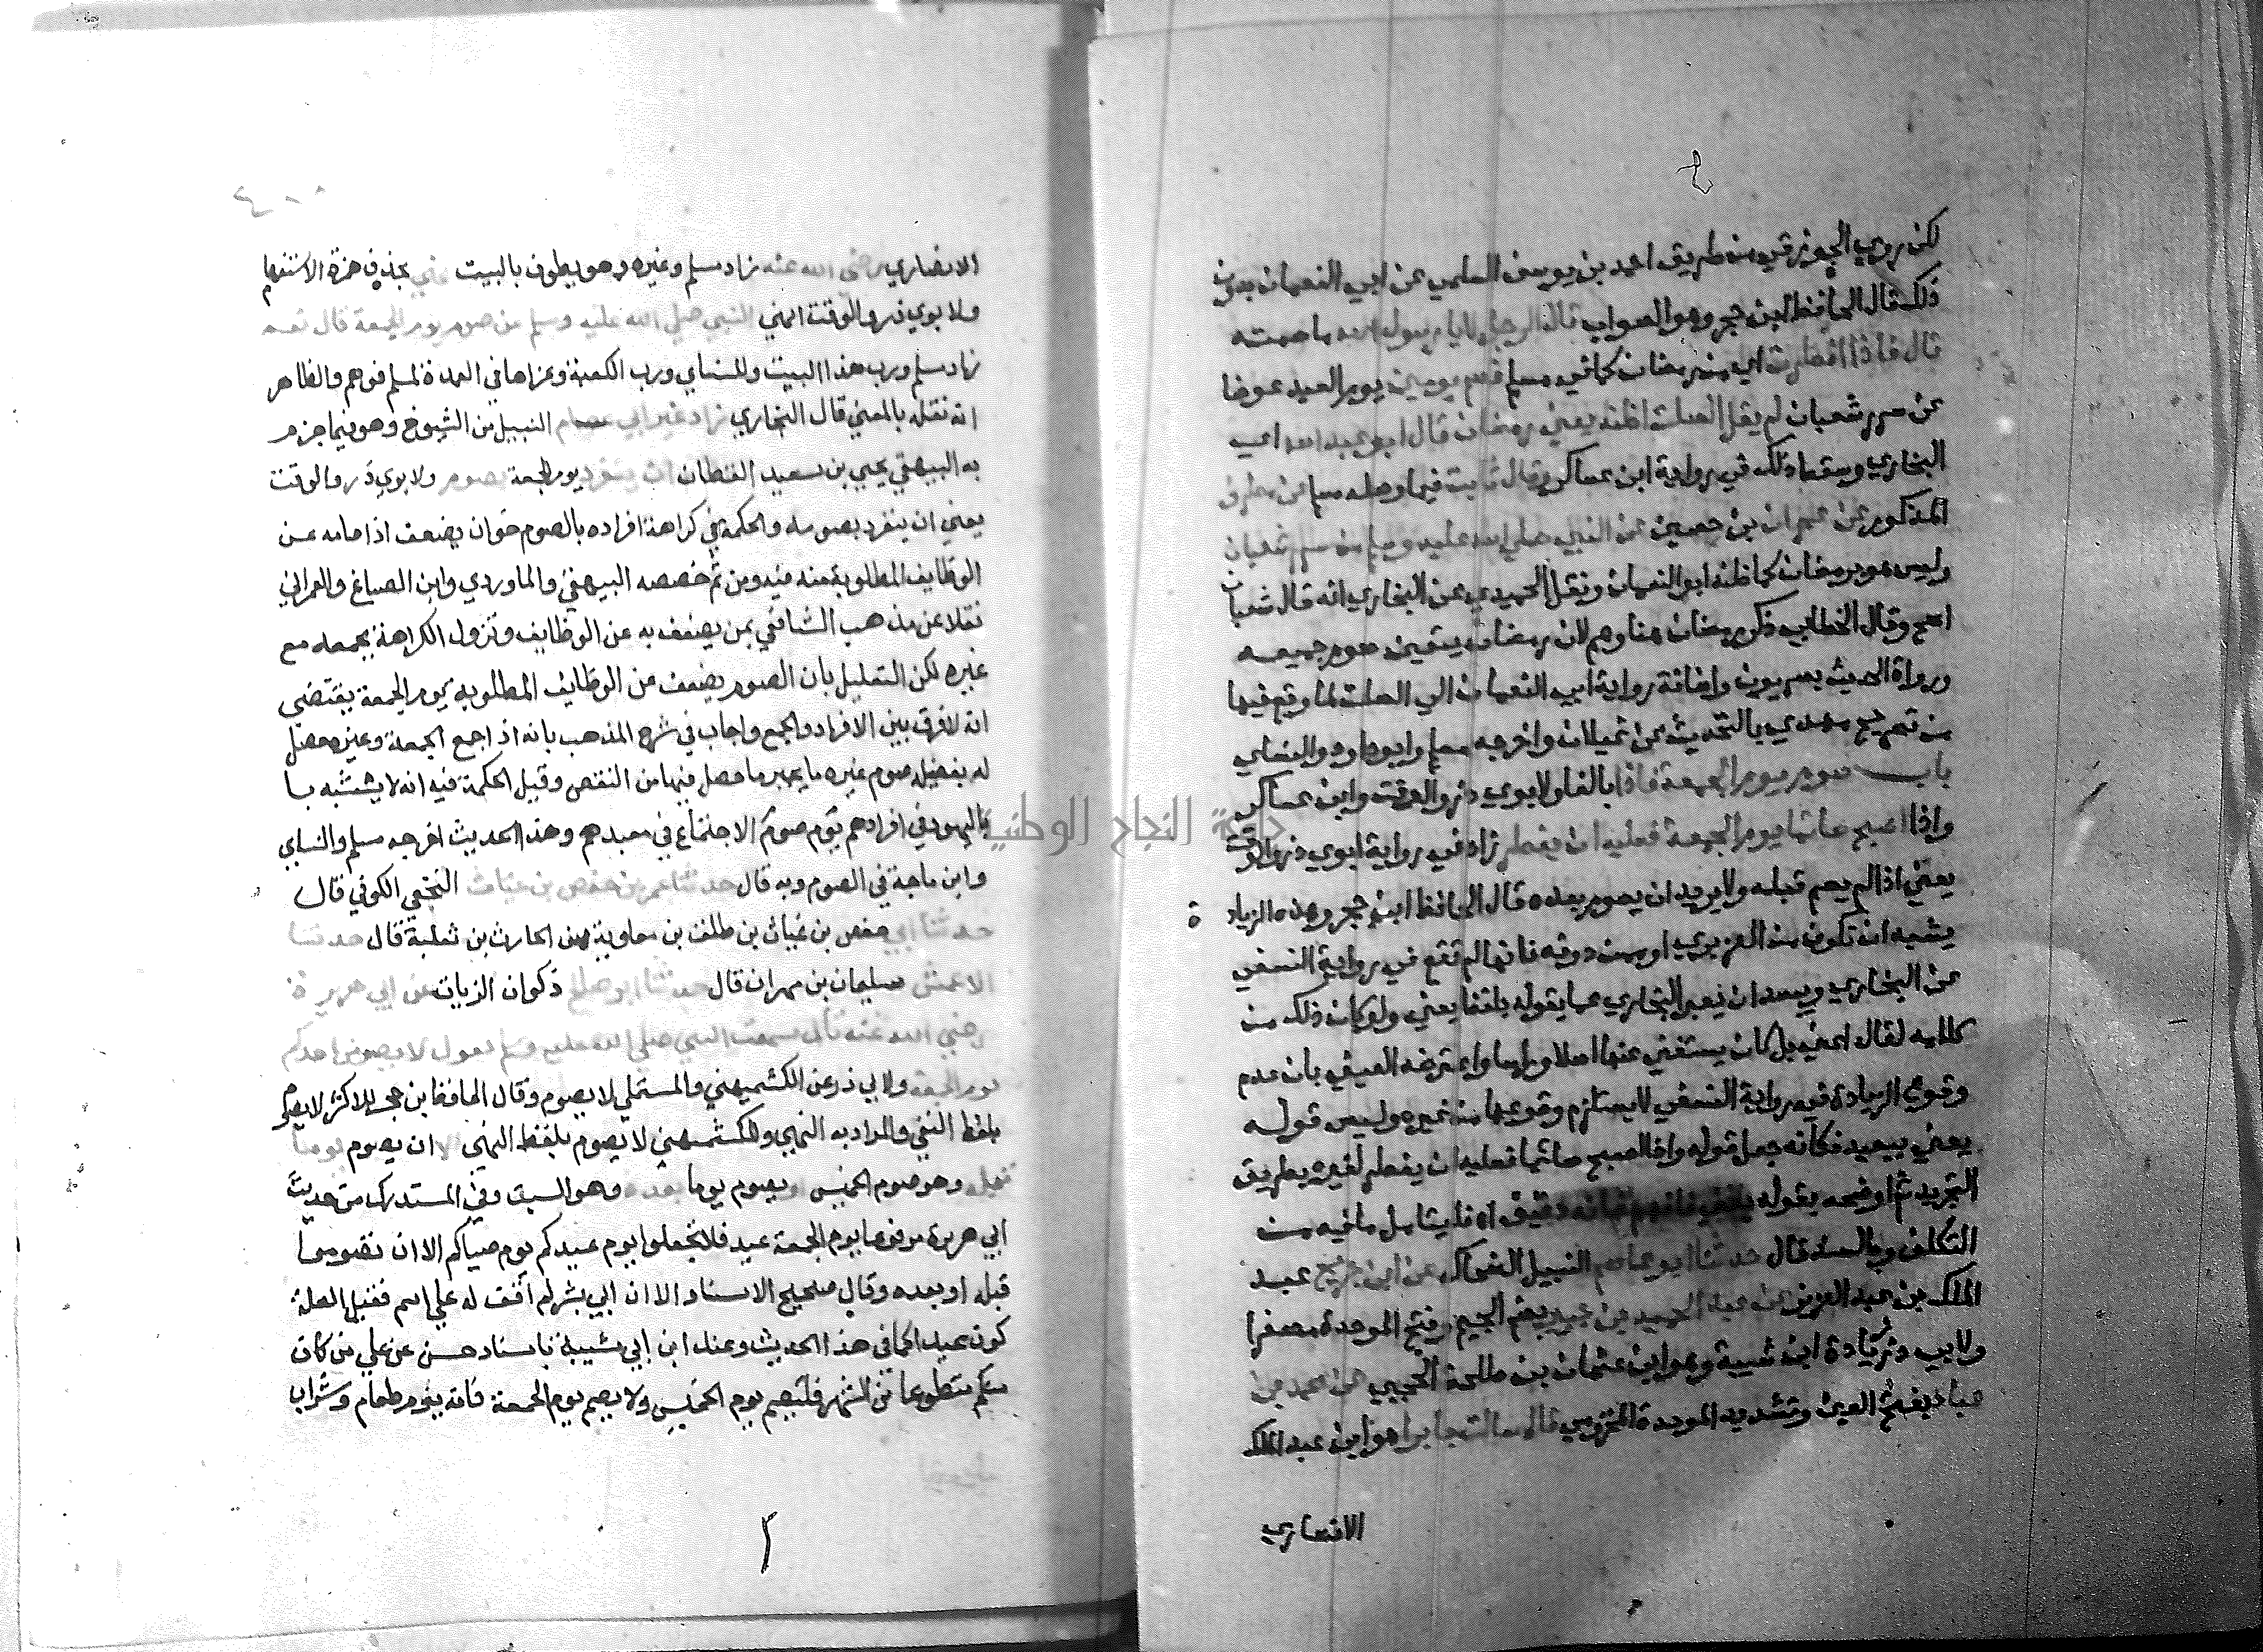 لكن روي الجوزقي من طريق احمد بن يوسف السلمي عن ابي النعمان بدون
ذلك قال الحافظ ابن حجر وهو الصواب قال الرجل لا يا رسول الله ما صمته
قال فاذا افطرت اي من رمضان كما في مسلم فصم يومين يوم العيد عوضا
عن سرر شعبان لم يقل الصلت اظنه يعني رمضان قال ابو عبد الله اي
البخاري وسقط ذلك في رواية ابن عساكر وقال ثابت فيما وصله مسلم عن مطرف
المذكور عن عمران بن حصين عن النبي صلي الله عليه وسلم من سرر شعبان
وليس هو برمضان كما ظنه ابو النعمان ونقل الحميدي عن البخاري انه قال شعبان
اصح وقال الخطابي ذكر رمضان هنا وهم لان رمضان يتعين صوم جميعه
ورواة الحديث بصريون واضافة رواية ابي النعمان الي الصلت لما وقع فيها
من تصريح مهدي بالتحديث عن غيلان واخرجه مسلم وابو داود والنسائي
باب صوم يوم الجمعة فاذا بالفا ولابوي ذر والوقت وابن عساكر
واذا اصبح صائما يوم الجمعة فعليه ان يفطر زاد في رواية ابوي ذر والوقت
يعني اذا لم يصم قبله ولا يريد ان يصوم بعده قال الحافظ ابن حجر وهذه الزيادة
يشبه ان تكون من الفربري او من دونه فانها لم تقع في رواية النسفي
عن البخاري ويبعد ان يعبر البخاري عما يقوله بلفظ يعني ولو كان ذلك من
كلامه لقال اعني بل كان يستغني عنها اصلا وراسا واعترضه العيني بان عدم
وقوع الزيادة في رواية النسفي لا يستلزم وقوعها من غيره وليس قوله
يعني ببعيد فكانه جعل قوله واذا اصبح صائما فعليه ان يفطر لغيره بطريق
التجريد ثم اوضحه بقوله يعني فافهم فانه دقيق اه فليتامل ما فيه من
التكلف وبالسند قال حدثنا ابو عاصم النبيل الضحاك عن ابن جريج عبد
الملك بن عبد العزيز عن عبد الحميد بن جبير بضم الجيم وفتح الموحدة مصغرا
ولابي ذر زيادة ابن شيبة وهو ابن عثمان بن طلحة الحجبي عن محمد بن
عباد بفتح العين وتشديد الموحدة المخزومي قال سالت جابرا هو ابن عبد الملك
الانصاري
الانصاري رضي الله عنه زاد مسلم وغيره وهو يطوف بالبيت نهي بحذف همزة الاستفهام
ولابوي ذر والوقت انهي النبي صلي الله عليه وسلم عن صوم يوم الجمعة قال نعم
زاد مسلم ورب هذا البيت وللنساي ورب الكعبة وعزاها في العمدة لمسلم فوهم والظاهر
انه نقله بالمعني قال البخاري زاد غير ابي عصام النبيل من الشيوخ وهو فيما جزم
به البيهقي يحيي بن سعيد القطان ان ينفرد يوم الجمعة بصوم ولابوي ذر والوقت
يعني ان ينفرد بصومه والحكمة في كراهة افراده بالصوم خوان يضعف اذا صامه عن
الوظايف المطلوبة منه فيه ومن ثم خصصه البيهقي والماوردي وابن الصباغ والعمراني
نقلا عن مذهب الشافعي بمن يضعف به عن الوظايف وتزول الكراهة بجمعه مع
غيره لكن التعليل بان الصوم يضعف عن الوظايف المطلوبه يوم الجمعة يقتضي
انه لا فرق بين الافراد والجمع واجاب في شرح المذهب بانه اذا جمع الجمعة وغيره حصل
له بفضيلة صوم غيره ما يجبر ما حصل فيها من النقص وقيل الحكمة فيه انه لا يتشبه با
باليهود في افرادهم يوم صومهم الاجتماع في معبدهم وهذا الحديث اخرجه مسلم والنساي
وابن ماجة في الصوم وبه قال حدثنا عمر بن حفص بن غياث النخعي الكوفي قال
حدثنا ابي حفص بن غياث بن طلق بن معاوية بن الحارث بن ثعلبة قال حدثنا
الاعمش سليمان بن مهران قال حدثنا ابو صالح ذكوان الزيات عن ابي هريرة
رضي الله عنه قال سمعت النبي صلي الله عليه وسلم يقول لا يصومن احدكم
يوم الجمعة ولابي ذر عن الكشميهني والمستملي لا يصوم وقال الحافظ ابن حجر للاكثر لا يصوم
بلفظ النفي والمراد به النهي وللكشميهني لا يصوم بلفظ النهي الا ان يصوم يوما
قبله وهو صوم الخميس او يصوم يوما بعده وهو السبت وفي المستدرك من حديث
ابي هريرة مرفوعا يوم الجمعة عيد فلا تجعلوا يوم عيدكم يوم صيامكم الا ان تصوموا
قبله او بعده وقال صحيح الاسناد الا ان ابي بشر لم اقف له علي اسم فقيل العلة
كونه عيدا كما في هذا الحديث وعند ابن ابي شيبة باسناد حسن عن علي من كان
منكم متطوعا من الشهر فليصم يوم الخميس ولا يصم يوم الجمعة فانه يوم طعام وشراب